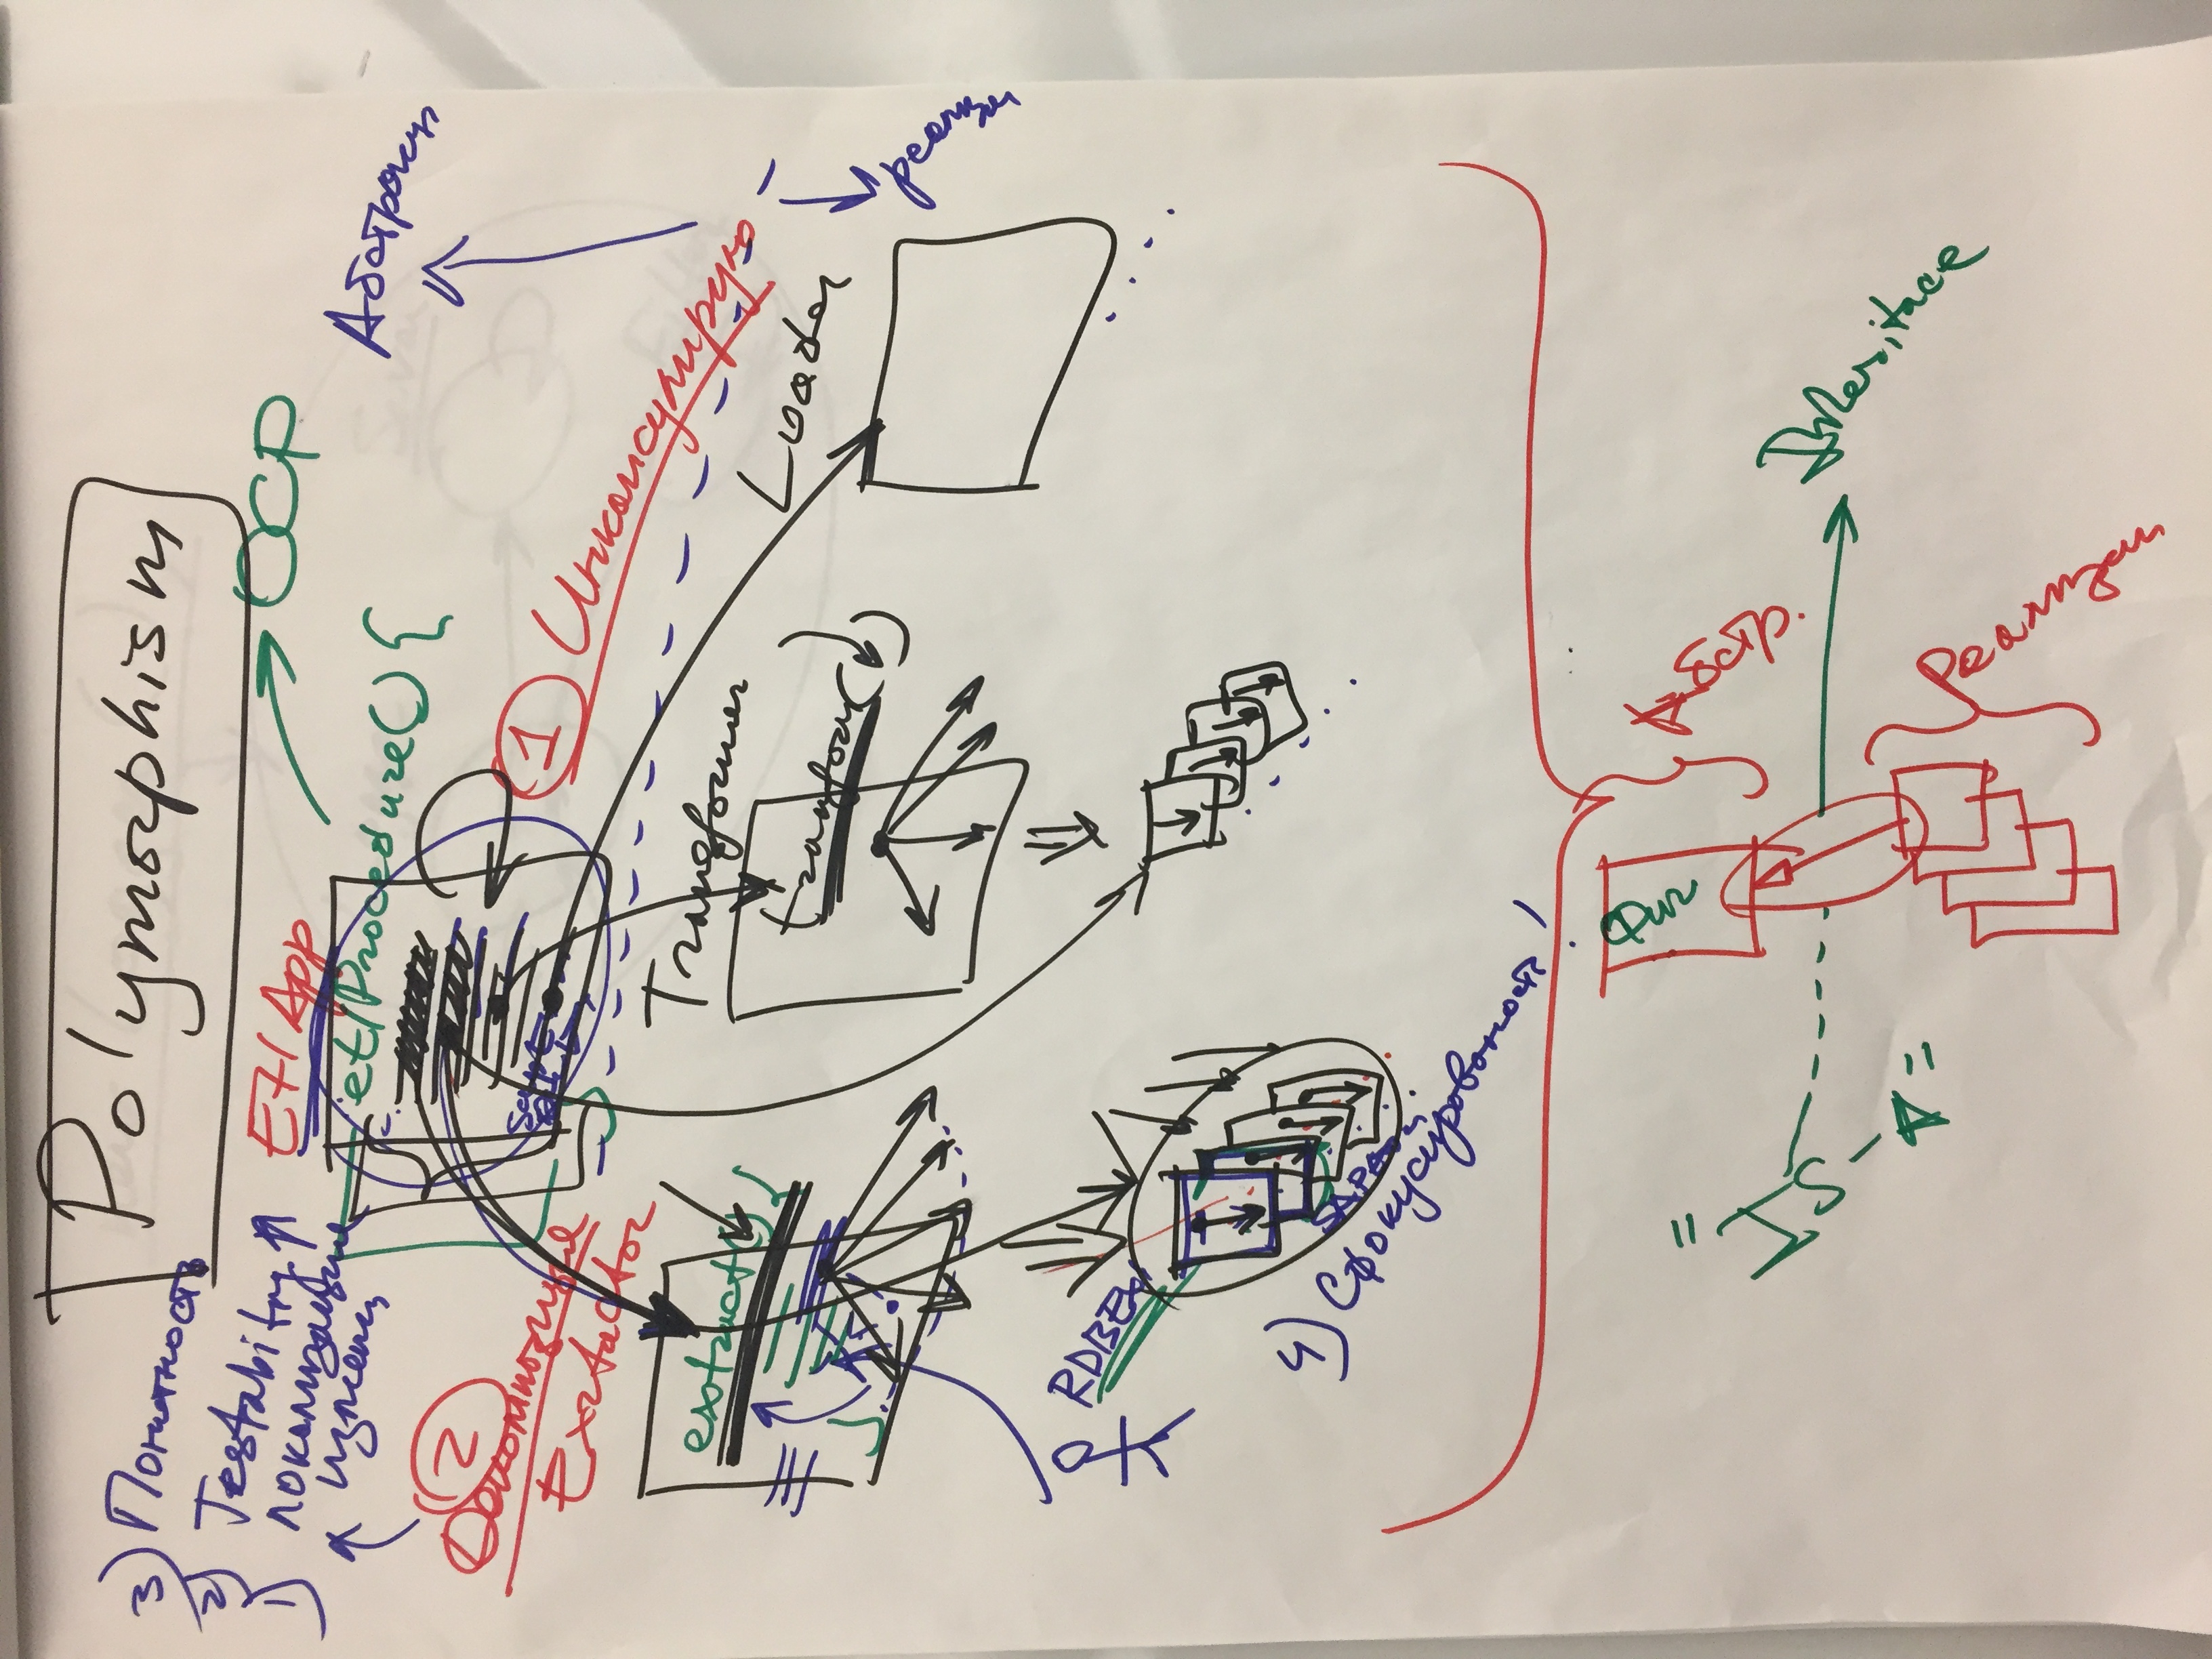 Polymorphism
3) Понятность
2) Testability ↑
1) локализация
измен
OCP
Etl App
etlProcedure() {
Абстракци
2
Декомпозиция
Extactor
1 Инкапсулирую
extract() {
}
Transformer
transform()
Loader
реализ
RDBEx
SAPEx
4) Сфокусированность !
Фиг
Абстр.
=
VS
=
Inheritace
Реализации